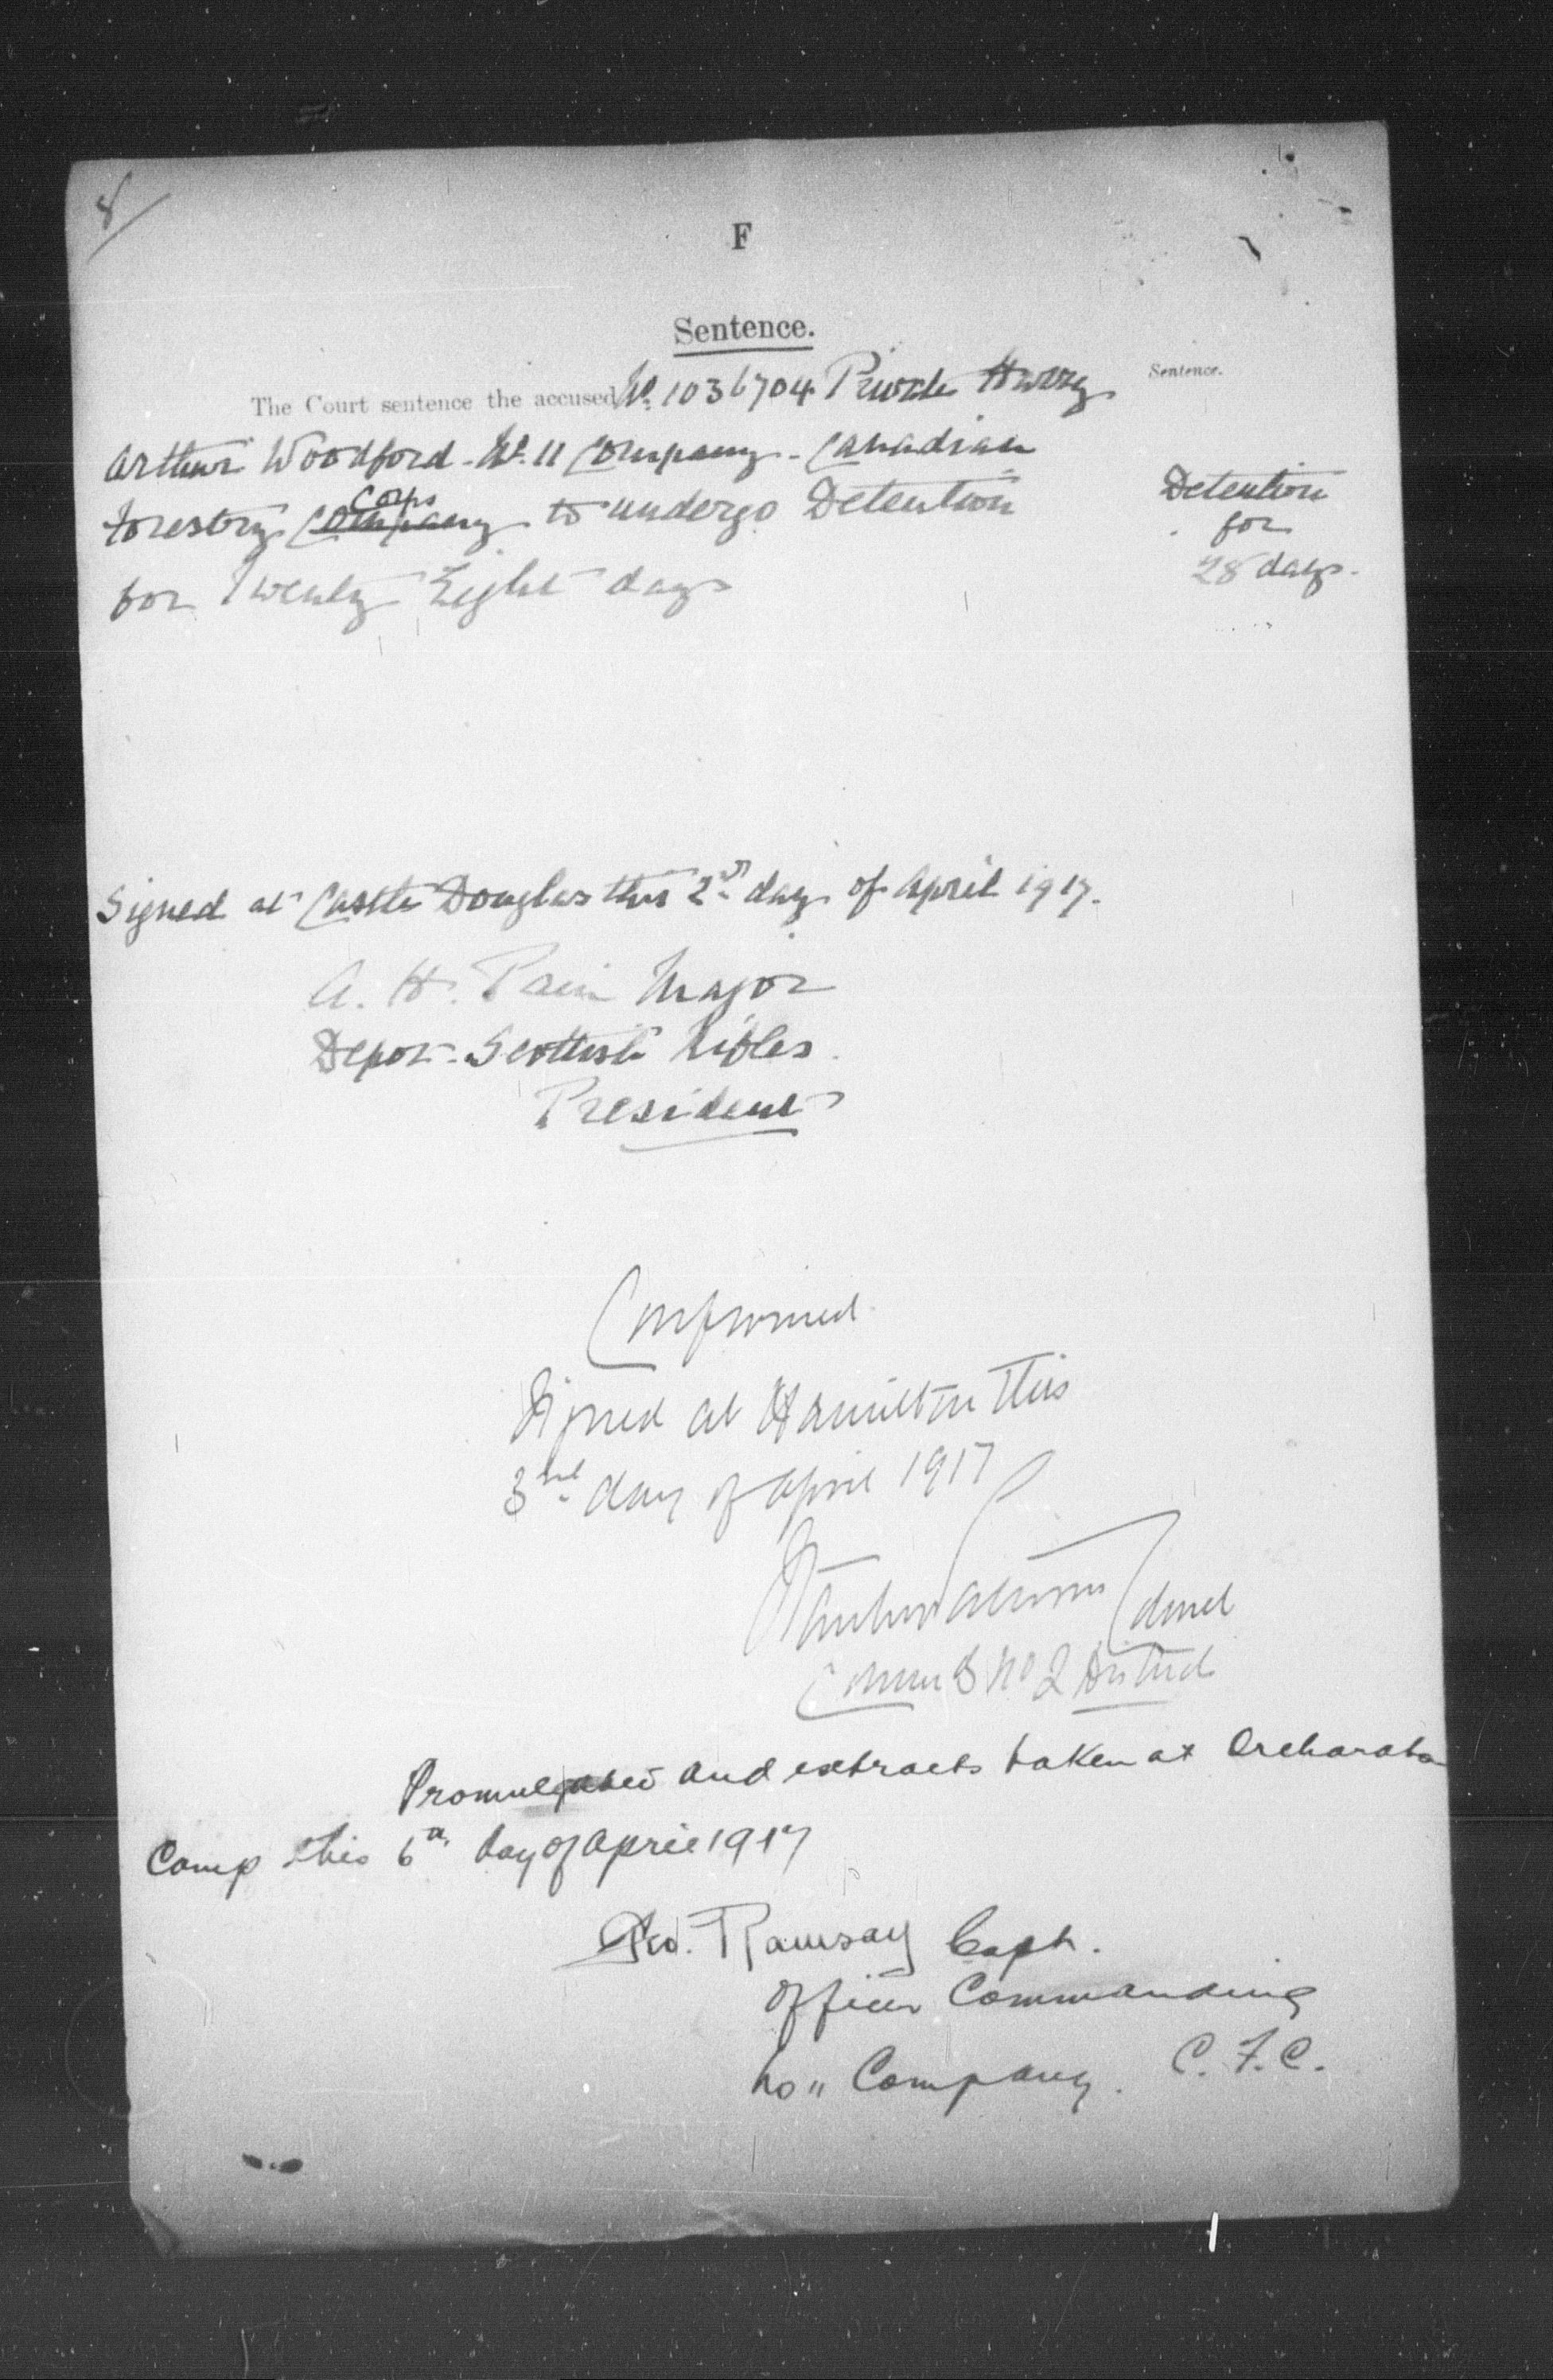 8/
F
Sentence.
Sentence.
The Court sentence the accused, No. 1036704 Private Harry
Arthur Woodford - No. 11 Company - Canadian
Forestry Company Corps to undergo Detention
for Twenty Eight days
Detention
for
28 days.
Signed at Castle Douglas this 2nd day of April 1917.
A. H. Pain Major
Depot Scottish Rifles
President
Confirmed.
Signed at Hamilton this
3rd day of April 1917
Colonel
No 2 District
Promulgated and extracts taken at Orchardton
Camp this 6th day of April 1917
Geo. Ramsay Capt.
Officer Commanding
No 11 Company. C.F.C.